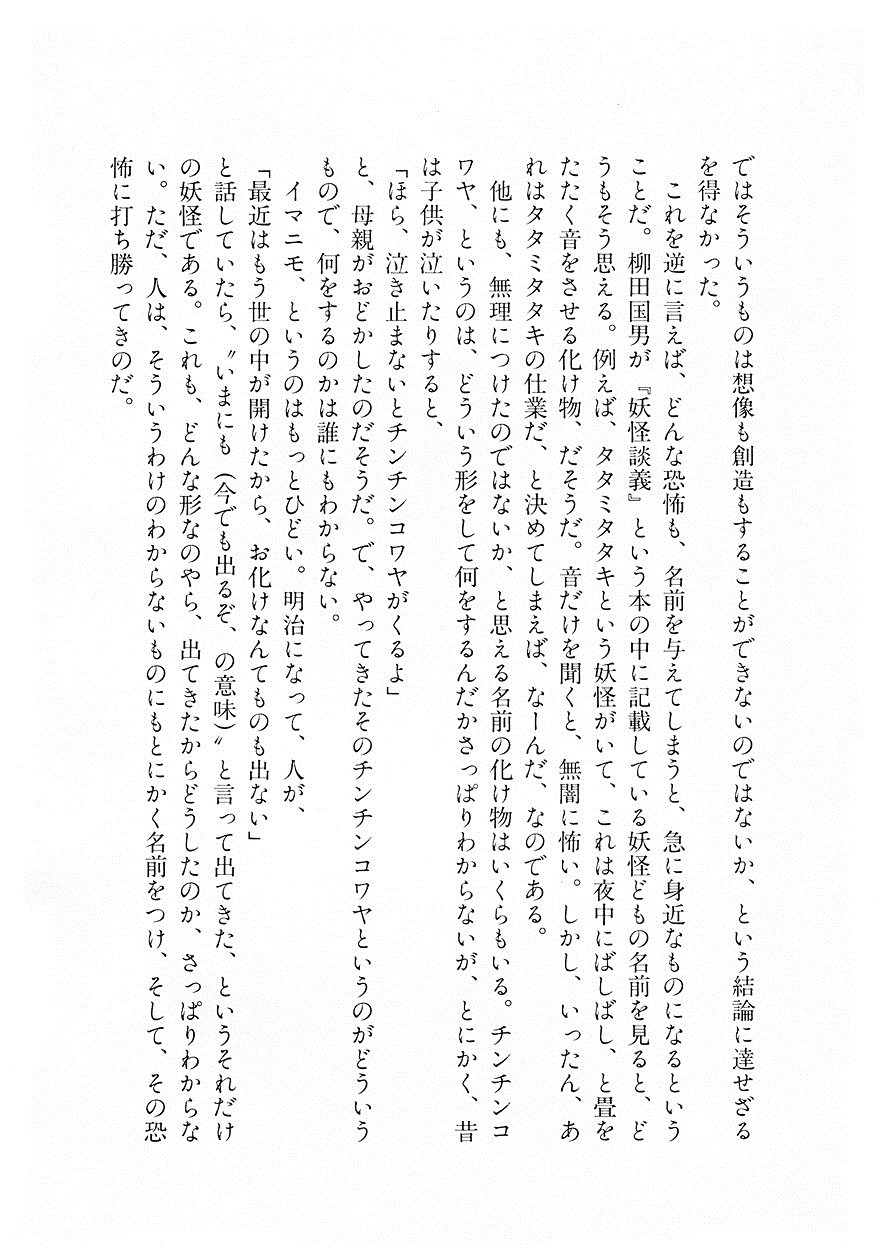 ではそういうものは想像も創造もすることができないのではないか、という結論に達せざる
を得なかった。
これを逆に言えば、どんな恐怖も、名前を与えてしまうと、急に身近なものになるという
ことだ。柳田国男が『妖怪談義』という本の中に記載している妖怪どもの名前を見ると、ど
うもそう思える。例えば、タタミタタキという妖怪がいて、これは夜中にばしばし、と畳を
たたく音をさせる化け物、だそうだ。音だけを聞くと、無闇に怖い。しかし、いったん、あ
れはタタミタタキの仕業だ、と決めてしまえば、なーんだ、なのである。
他にも、無理につけたのではないか、と思える名前の化け物はいくらもいる。チンチンコ
ワヤ、というのは、どういう形をして何をするんだかさっぱりわからないが、とにかく、昔
は子供が泣いたりすると、
「ほら、泣き止まないとチンチンコワヤがくるよ」
と、母親がおどかしたのだそうだ。で、やってきたそのチンチンコワヤというのがどういう
もので、何をするのかは誰にもわからない。
イマニモ、というのはもっとひどい。明治になって、人が、
「最近はもう世の中が開けたから、お化けなんてものも出ない」
と話していたら、〝いまにも（今でも出るぞ、の意味）〟と言って出てきた、というそれだけ
の妖怪である。これも、どんな形なのやら、出てきたからどうしたのか、さっぱりわからな
い。ただ、人は、そういうわけのわからないものにもとにかく名前をつけ、そして、その恐
怖に打ち勝ってきのだ。